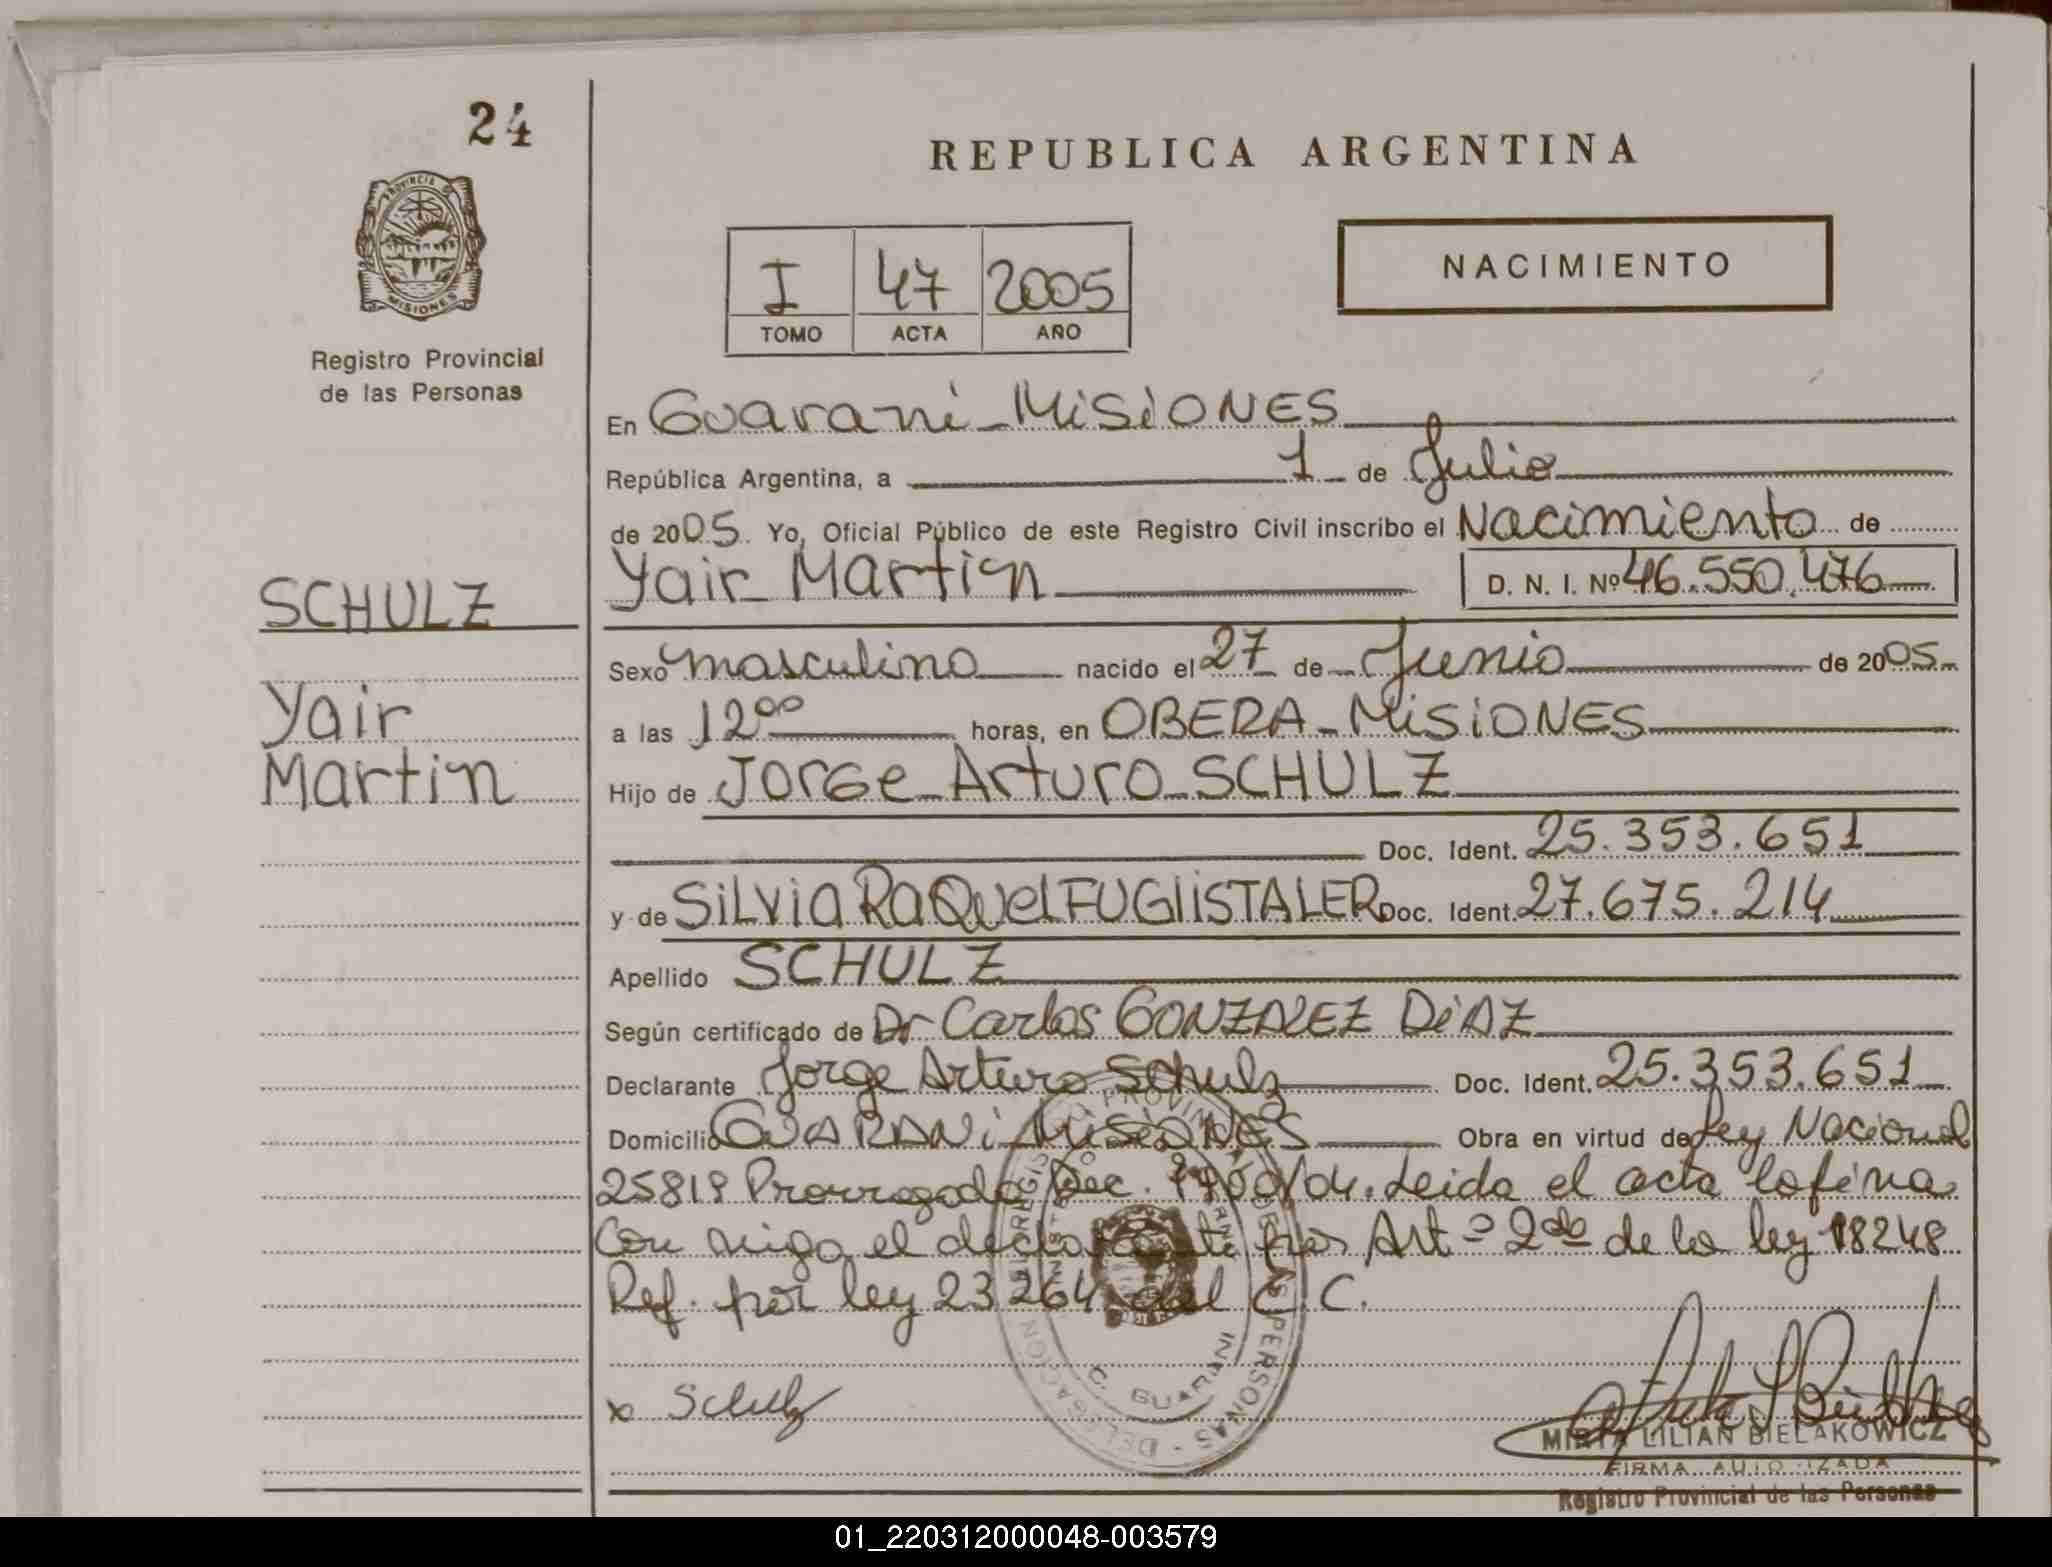 24
REPUBLICA ARGENTINA
PROVINCIA DE
MISIONES
Registro Provincial
de las Personas
I 47 2005
TOMO ACTA AÑO
NACIMIENTO
En Guarani - MISIONES
República Argentina, a 1 de Julio
de 2005 Yo, Oficial Público de este Registro Civil inscribo el Nacimiento de
SCHULZ
Yair Martin D. N. I. Nº 46.550.476
Sexo masculino nacido el 27 de Junio de 2005
Yair
a las 12 00 horas, en OBERA - MISIONES
Martin
Hijo de Jorge Arturo SCHULZ
Doc. Ident. 25.353.651
y de Silvia Raquel FUGLISTALER Doc. Ident. 27.675.214
Apellido SCHULZ
Según certificado de Dr Carlos GONZALEZ DIAZ
Declarante Jorge Arturo Schulz Doc. Ident. 25.353.651
Domicilio GUARANI MISIONES Obra en virtud de Ley Nacional
25819 Prorrogado Dec. /04. Leida el acta la firma
Con migo el declarante por Art º 2do de la ley 18248
Ref. por ley 23264 del C.C.
C. GUARANI
x Schulz
MIRTA LILIAN BIELAKOWICZ
FIRMA AUTORIZADA
Registro Provincial de las Personas
01_220312000048-003579